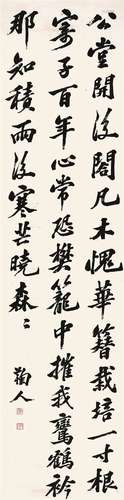 公堂開後閣凡木愧華簪栽培一寸根
寄子百年心常恐樊籠中摧我鸞鶴衿
那知積雨後寒芒曉森〻
鞠人